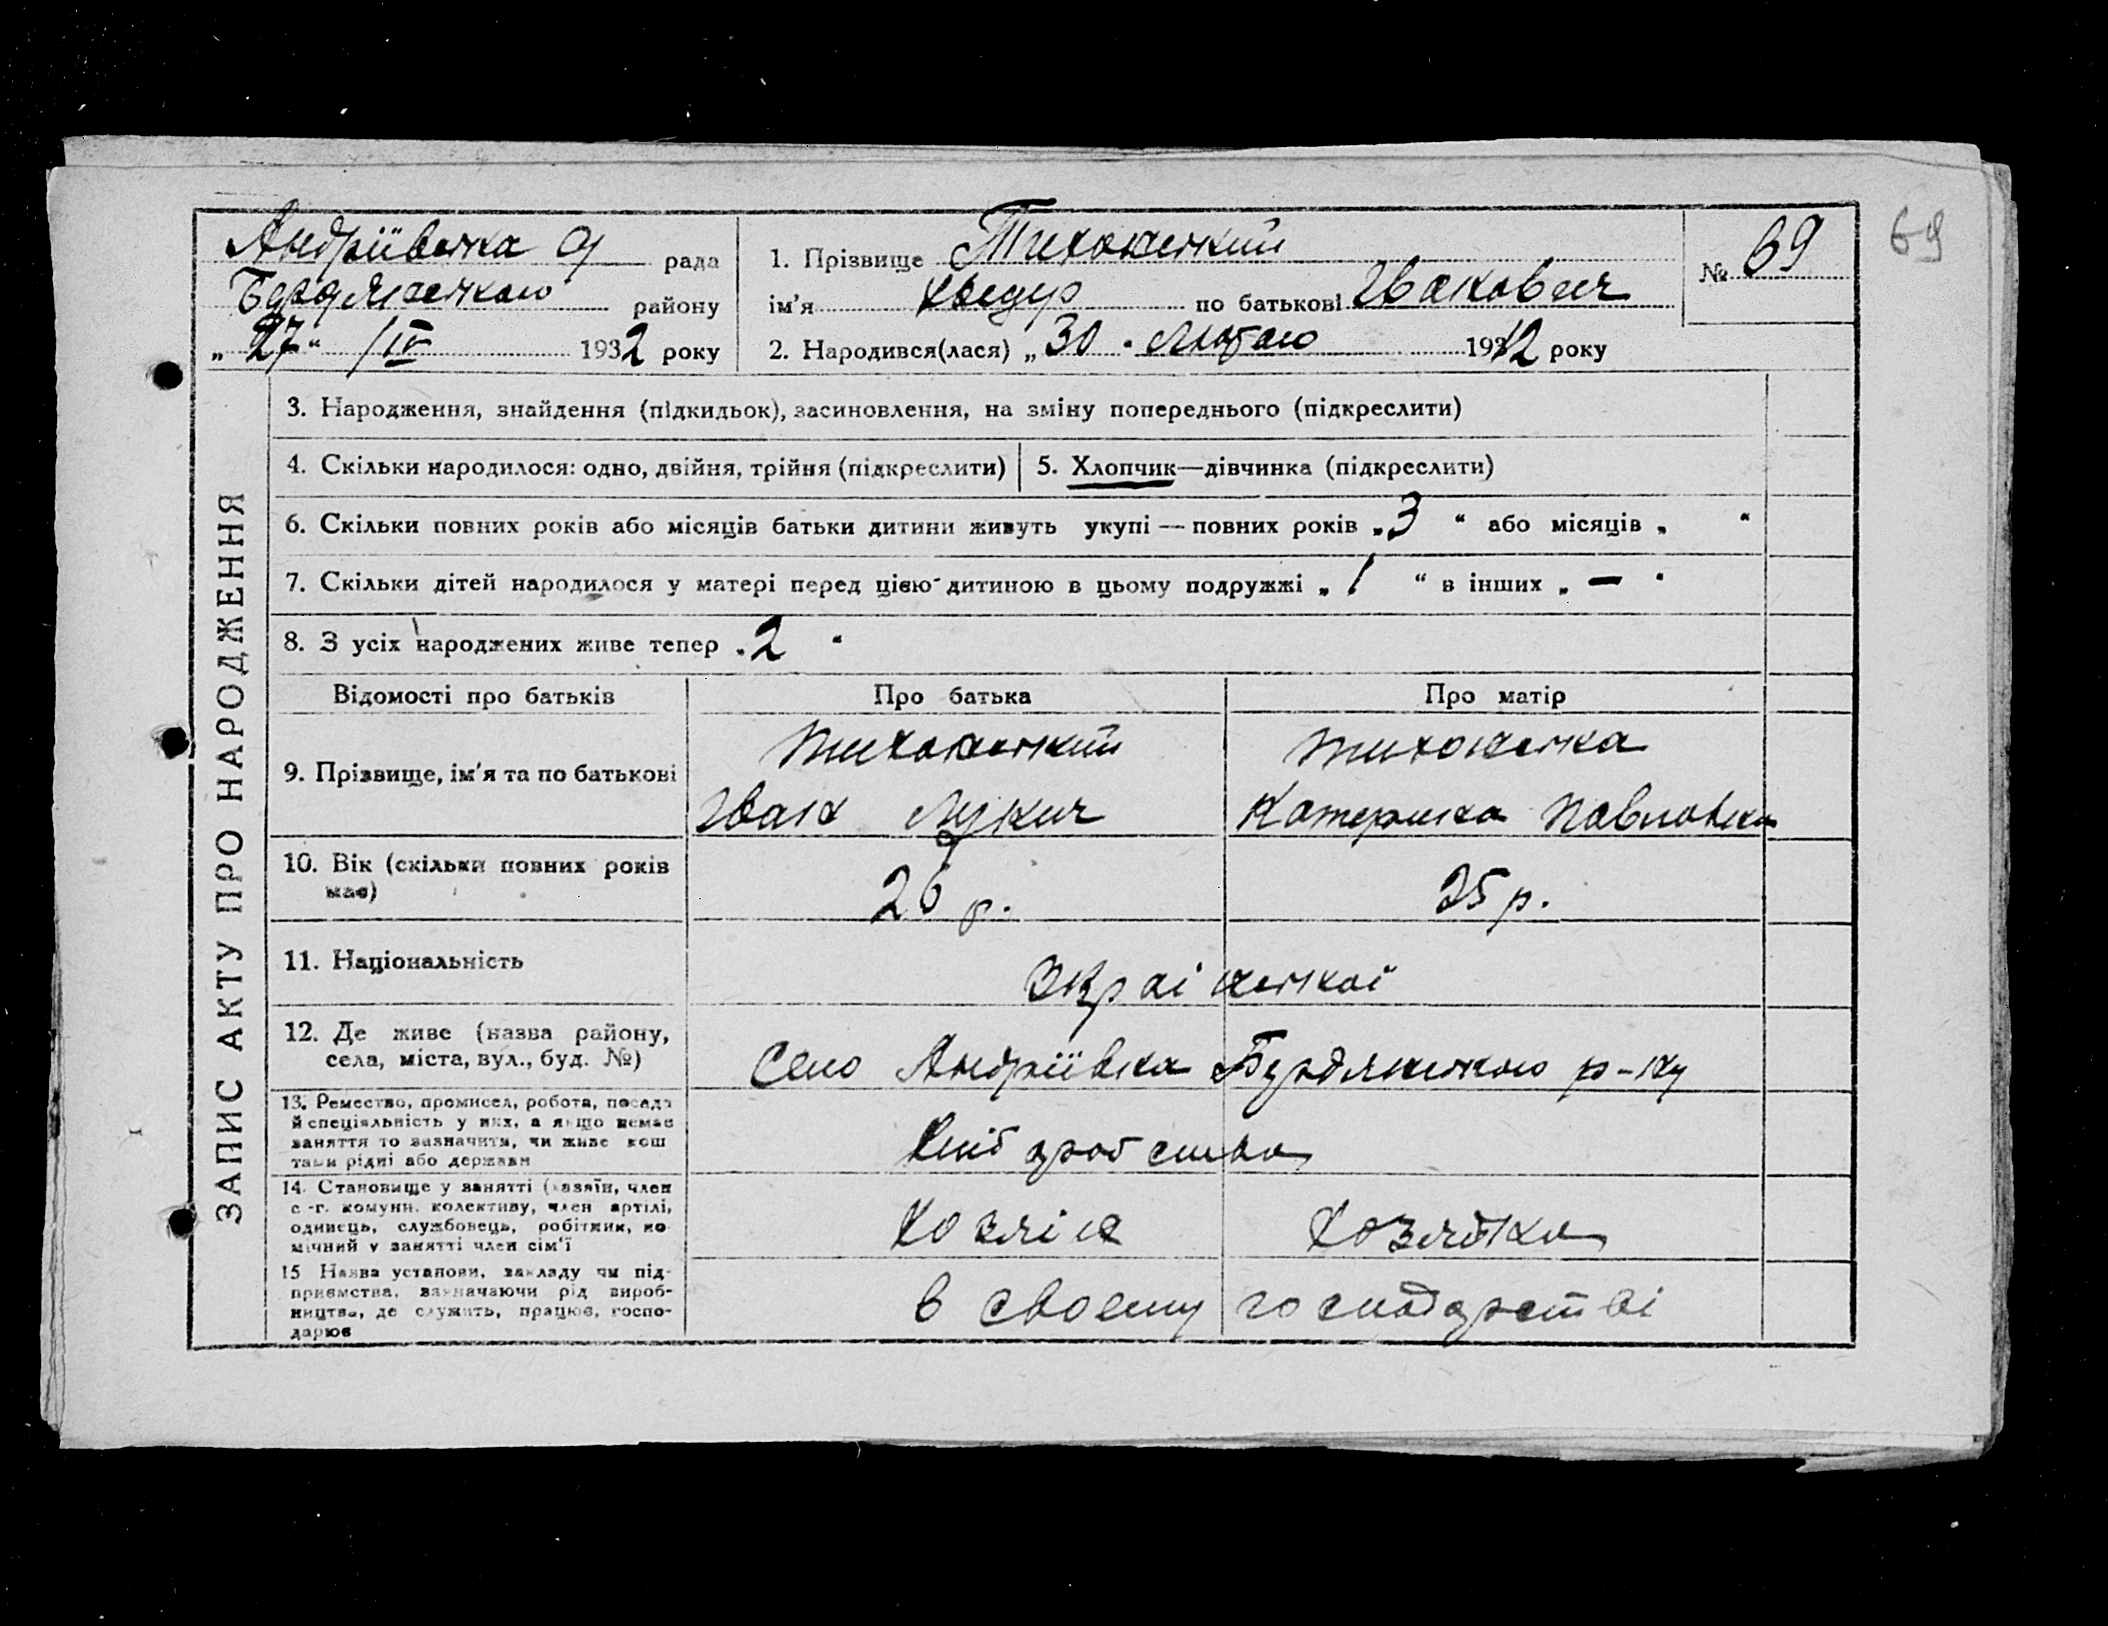 Андріівська с/ рада
Бердянського району
„27“ /IV 1932 року
1. Прізвище Тихонський
ім'я Хведур по батькові Іванович
2. Народився(лася) „30 “ Лютого 1932 року
№ 69
69
ЗАПИС АКТУ ПРО НАРОДЖЕННЯ
3. Народження, знайдення (підкидьок), засиновлення, на зміну попереднього (підкреслити)
4. Скільки народилося: одно, двійня, трійня (підкреслити) 5. Хлопчик—дівчинка (підкреслити)
6. Скільки повних років або місяців батьки дитини живуть укупі — повних років „3 “ або місяців „ “
7. Скільки дітей народилося у матері перед цією дитиною в цьому подружжі „ 1 “ в інших „ — “
8. З усіх народжених живе тепер „2 “
Відомості про батьків Про батька Про матір
9. Прізвище, ім'я та по батькові
Тихонський Тихонська
Іван Лукич Катерина Павловна
10. Вік (скільки повних років
має)
26 р. 25 р.
11. Національність
Украінської
12. Де живе (назва району,
села, міста, вул., буд. №)
Село Андріівка Бердянського р-ну
13. Ремество, промисел, робота, посада
й спеціяльність у них, а якщо немає
заняття то зазначити, чи живе кош
тами рідні або держави
Хліборобство
14. Становище у занятті (хазяїн, член
с.-г. комуни, колективу, член артілі,
одинець, службовець, робітник, по
мічний у занятті член сім'ї
Хозяін Хозяйка
15 Назва установи, закладу чи під-
приємства, зазначаючи рід вироб-
ництва, де служить, працює, госпо-
дарює
в своему господарстві